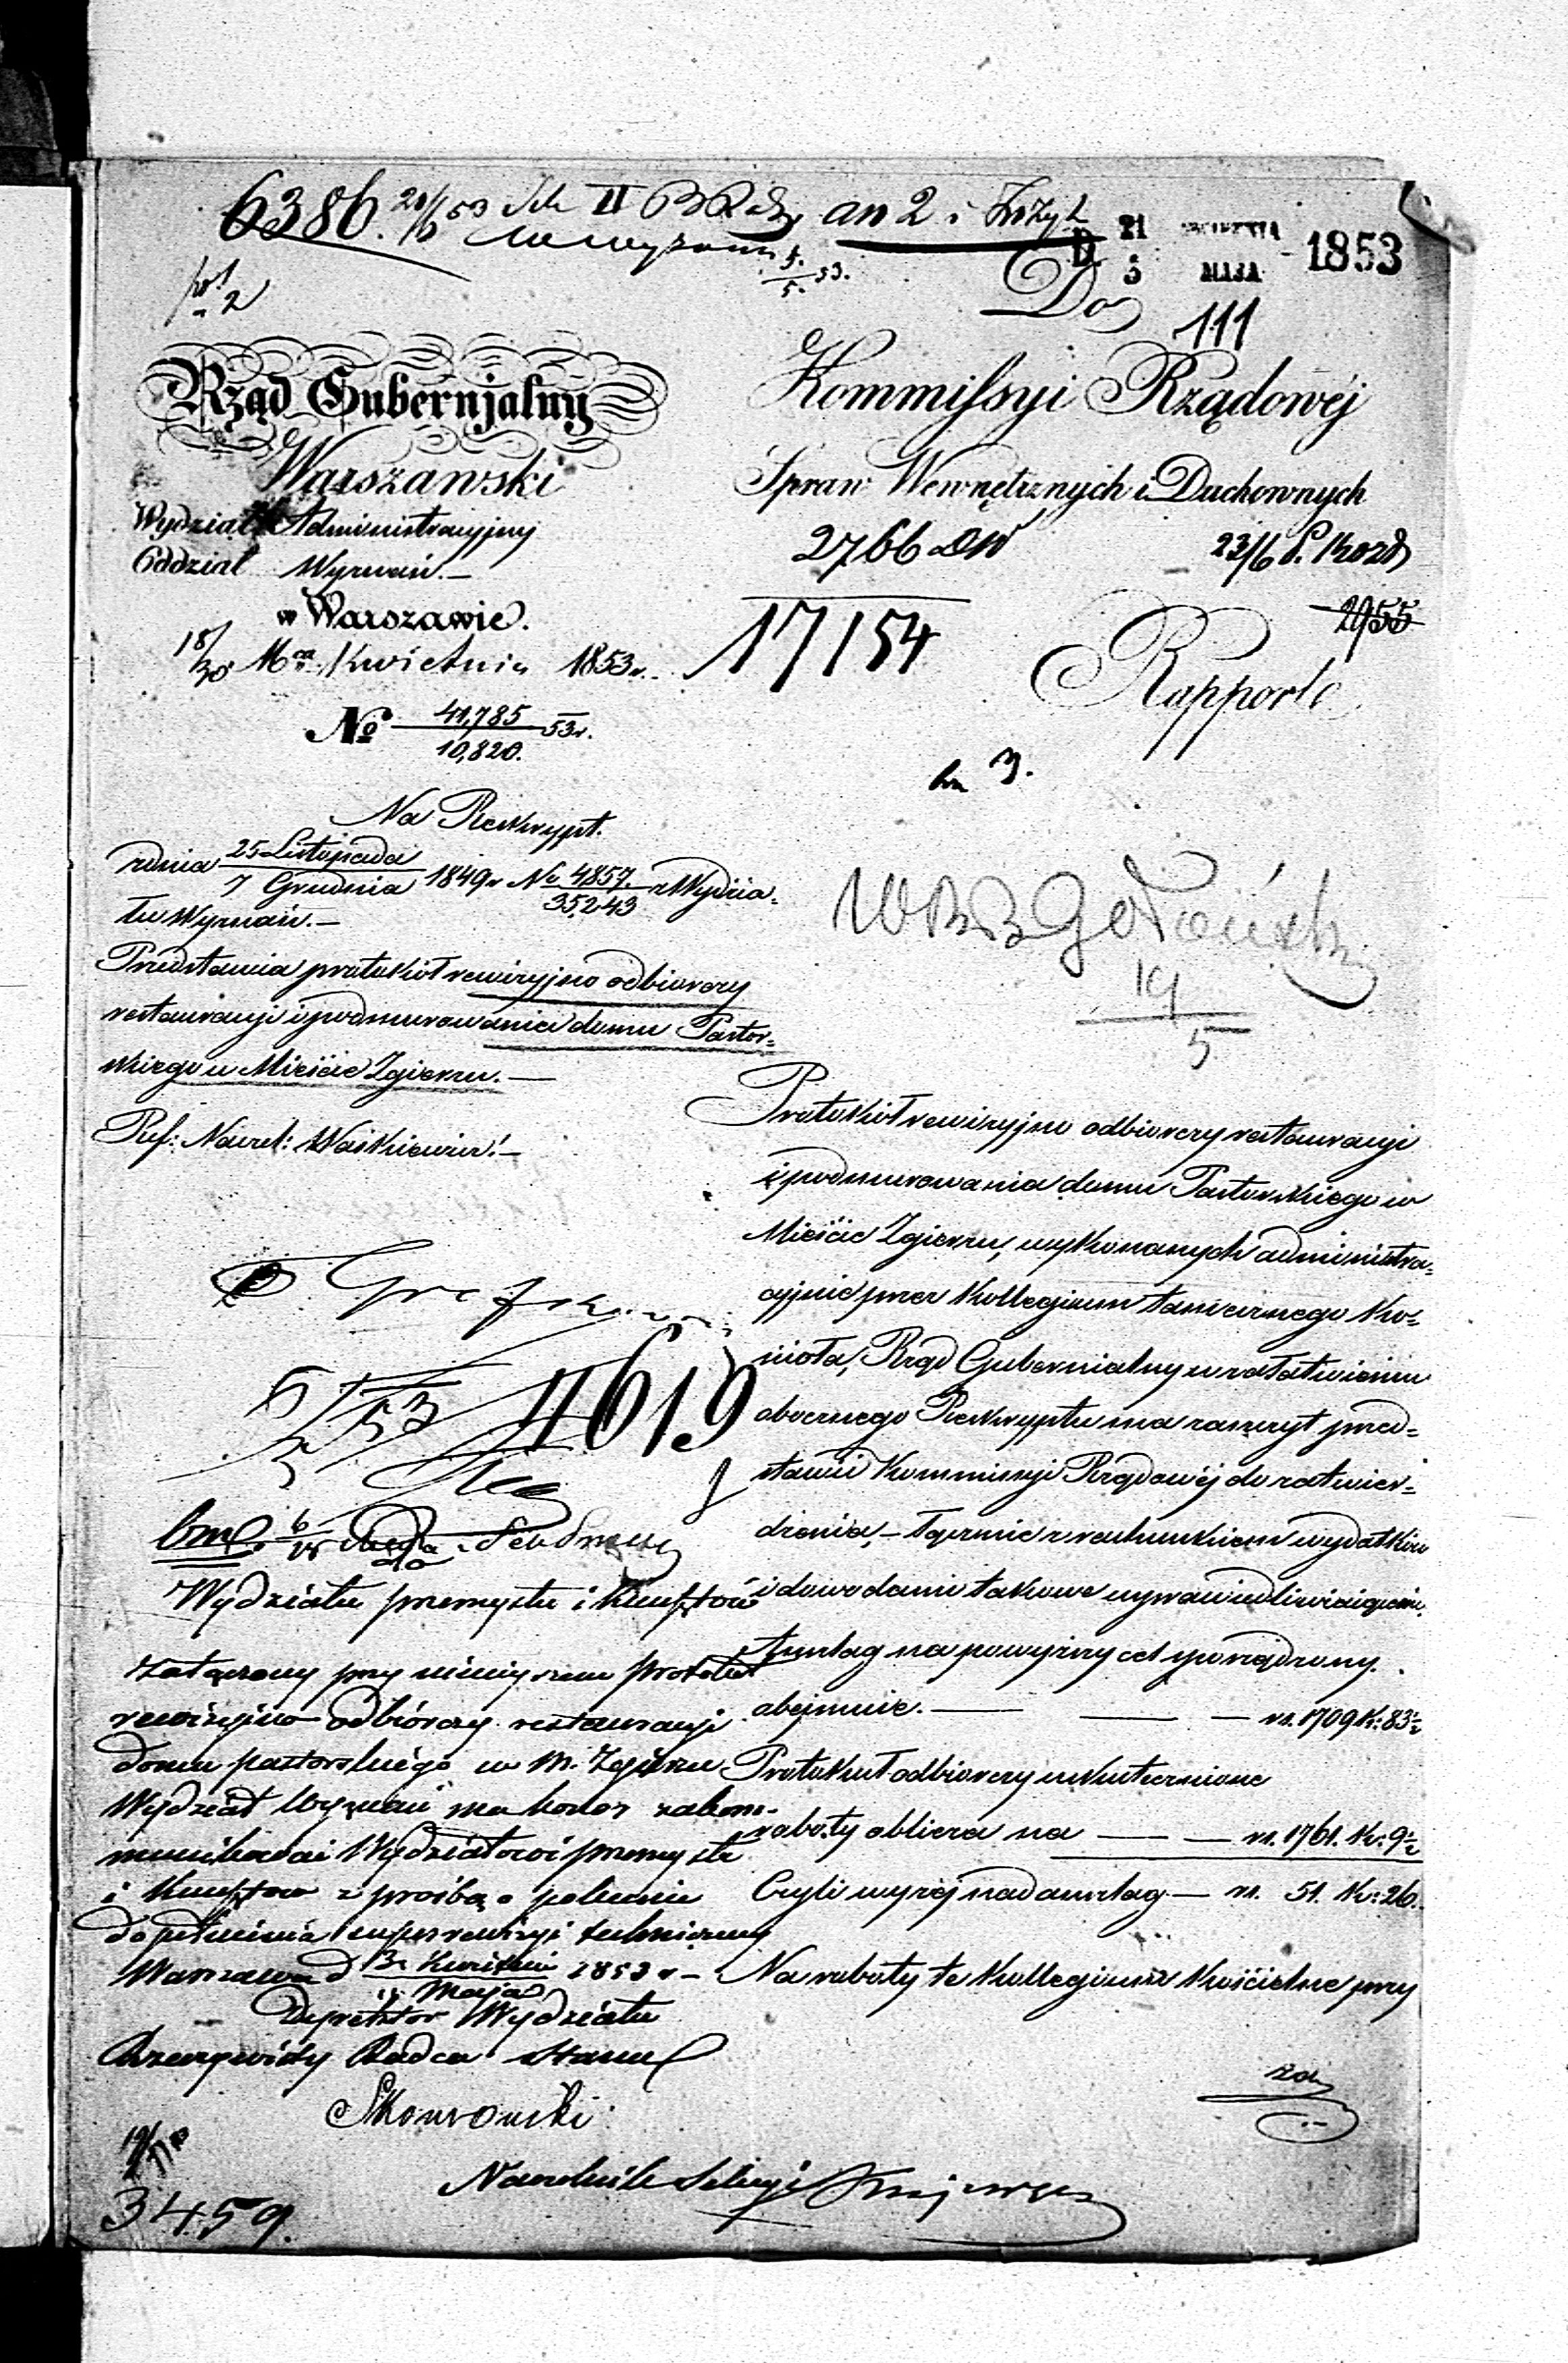 6386.
an 2 i
D 21 KWIETNIA
3 MAJA 1853
Do
111
Rząd Gubernjalny
Warszawski
Wydział Administracyjny
Oddział Wyznań.—
w Warszawie.
18/30 Kwietnia 1853 r.
№ 41,785/10,820. 53 r.
Kommissyi Rządowéj
Spraw Wewnętrznych i Duchownych
2766
23/6
17154
2955
Rapport
3.
Na Reskrypt.
z dnia 25 Listopada/7 Grudnia 1849 r. No 4857./35,243 z Wydzia-
łu Wyznań.—
Przedstawia protokół rewizyjno odbiorczy
restauracyi i podmurowania domu Pastor-
skiego w Mieście Zgierzu.—
Ref: Naczel: Waśkiewicz.—
19
5
Protokół rewizyjno odbiorczy restauracyi
i podmurowania domu Pastorskiego w
Mieście Zgierzu, wykonanych administra-
cyjnie przez Kollegium tamecznego Ko-
ścioła, Rząd Gubernialny w załatwieniu
obocznego Reskryptu ma zaszczyt przed-
stawić Kommissyi Rządowéj do zatwier-
dzenia,— łącznie z rachunkiem wydatków
i dowodami takowe usprawiedliwiającemi.
Anszlag na powyższy cel sporządzony
obejmuje.— — — rs. 1709 k: 83½
Protokuł odbiorczy uskutecznione
roboty oblicza na — — rs. 1761. k: 9½
Czyli wyżéj nad anszlag — rs. 51. k: 26.
Na roboty te Kollegium Kościelne przy
za
4619
Wydziału przemysłu i kunsztów
załączony przy niniejszem protokół
rewizyjno odbiórczy restauracyi
domu pastorskiego w m. Zgierzu
Wydział Wyznań ma honor zakom-
munikować Wydziałowi przemysłu
i kunsztów z prośbą o polecenie
dopełnienia superrewizyi technicznej
Warszawa d Kwietnia/Maja 1853 r —
Dyrektor Wydziału
Rzeczywisty Radca Stanu
Skowroński
Naczelnik Sekcyi
3459.